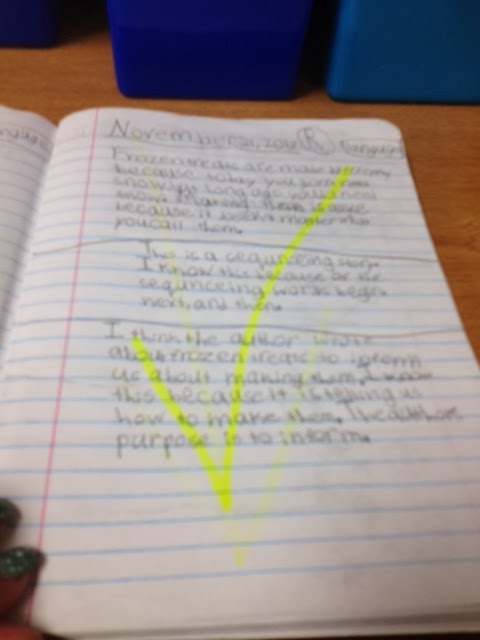 November 21, 201 R Language
Frozen treats are made
because today you
snow but long ago you need
snow. Making them is
because it doesn't matter
you call them.
This is a sequnceing story.
I know this because of the
sequnceing words begin,
next, and then.
I think the author wrote
about frozen treats to inform
us about making them. I know
this because it is telling us
how to make them. The authors
purpose is to inform.